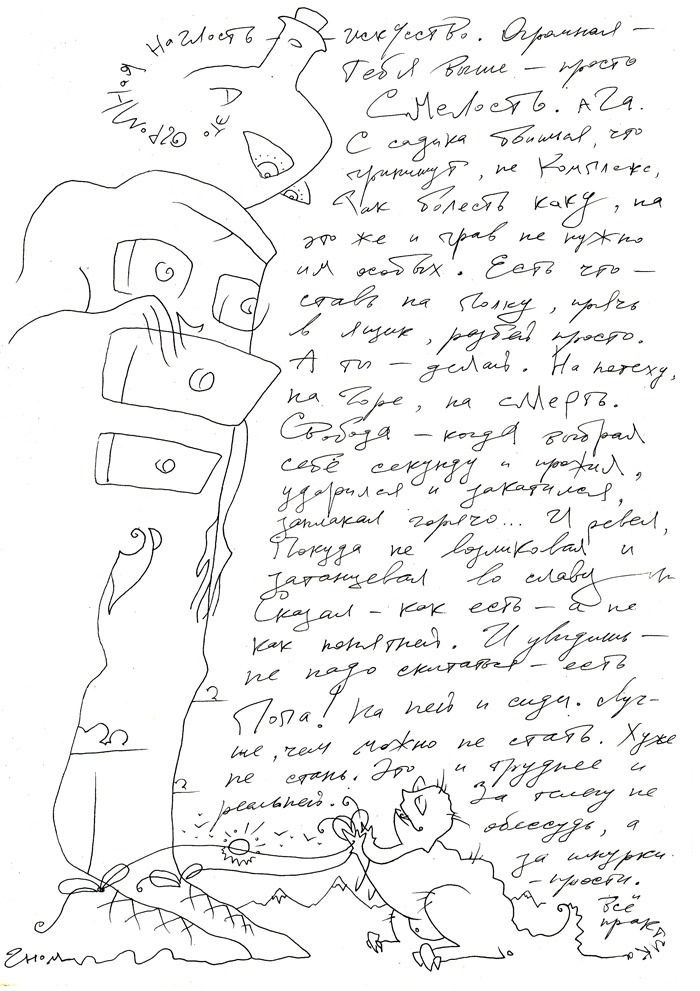 Наглость — искусство. Огромная —
Тебя выше — просто
Смелость. Ага.
С садика обвиняя, что
, не Комплекс,
Как болесть каку, на
это же и прав не нужно
им особых. Есть что —
ставь на Полку, прячь
в ящик, разбей просто.
А ты — делай. На потеху,
на Горе, на смерть.
Свобода — когда выбрал
себе секунду и прожил,
ударился и закатился,
заплакал горячо... И ревел,
Покуда не возликовал и
затанцевал во славу
Сказал — как есть — а не
как понятней. И увидишь —
не надо скитаться — есть
Попа! На ней и сиди. Луч-
ше, чем можно не стать. Хуже
не стань. Это и труднее и
реальней.
За телегу не
обессудь, а
за шкурки
— прости.
Всё
практика
Огромная
А это
Еном